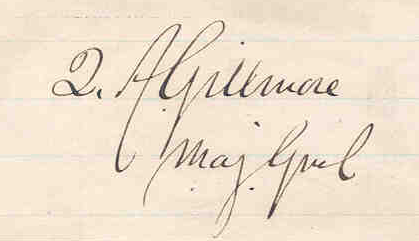 Q. A Gillmore
Maj Genl